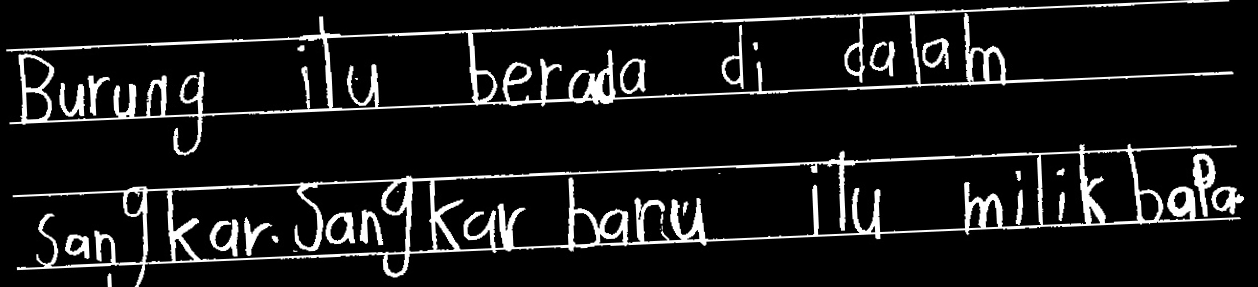 Burung itu berada di dalam
sangkar. Sangkar baru itu milik bapa.